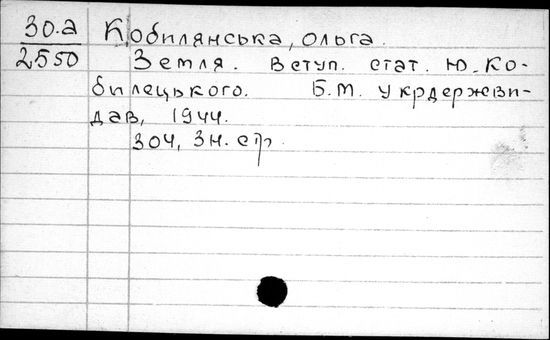 30.а Кобилянська, Ольга.
2550 Земля. Вступ. стат. Ю. Ко-
билецького. Б.М. Укрдержви-
дав, 1944.
304, 3н. стр.